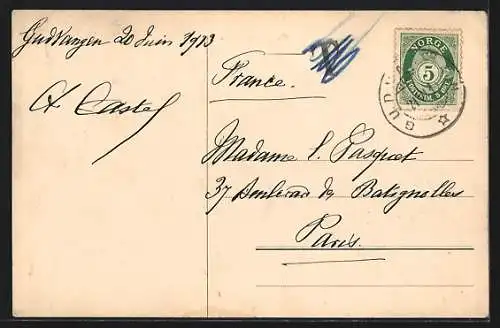 Gudvangen 20 Juin 1913
T
NORGE
France.
5
Castel
GUDV
Madame L. Pasquet
37 Boulevard des Batignolles
Paris.